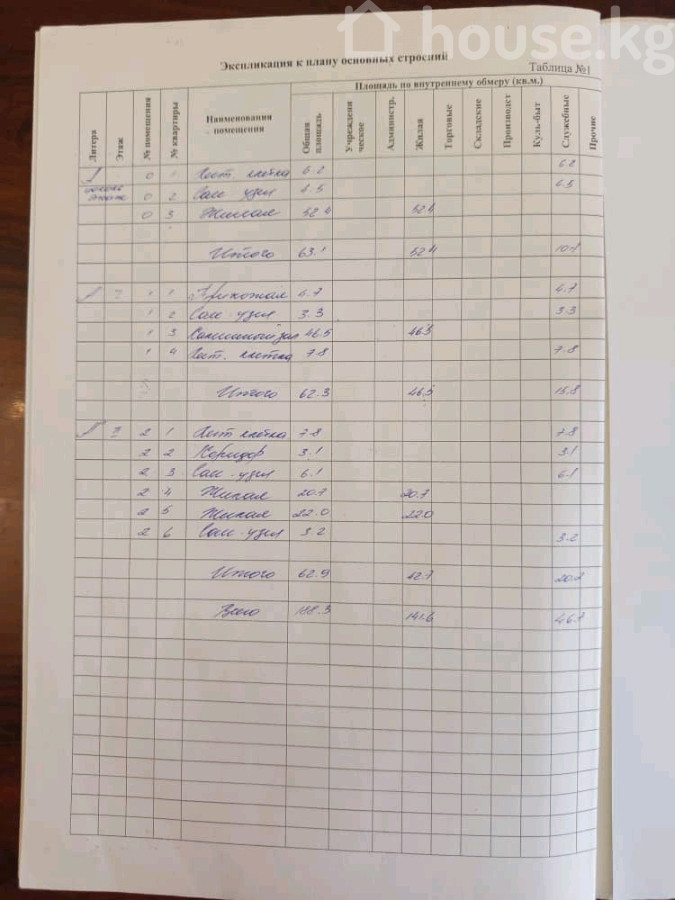 house.kg
Экспликация к плану основных строений
Таблица №1
Литера Этаж № помещения № квартиры Наименования помещения Площадь по внутреннему обмеру (кв.м.)
Общая площадь Учрежденическое Администр. Жилая Торговые Складские Производст Куль-быт Служебные Прочие
0 1 Лест. клетка 6.2 6.2
0 2 Сан узел 4.5
0 3 Жилая 52.4 52.4
Итого 63.1 52.4
1 Прихожая 4.7 4.7
1 2 Сан. узел 3.3 3.3
1 3 46.5 46.5
1 4 Лест. клетка 7.8 7.8
Итого 62.3 46.5 15.8
2 1 Лест клетка 7.8 7.8
2 2 Коридор 3.1 3.1
2 3 Сан. узел 6.1 6.1
2 4 Жилая 20.7 20.7
2 5 Жилая 22.0 22.0
2 6 Сан. узел 3.2 3.2
Итого 62.9 42.7 20.2
Всего 188.3 141.6 46.7